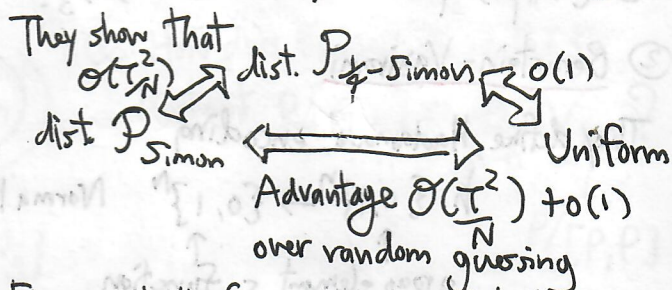 They show that
O(T²/N) dist. P 1/4-Simon O(1)
dist. P Simon Uniform
Advantage O(T²/N) + O(1)
over random guessing